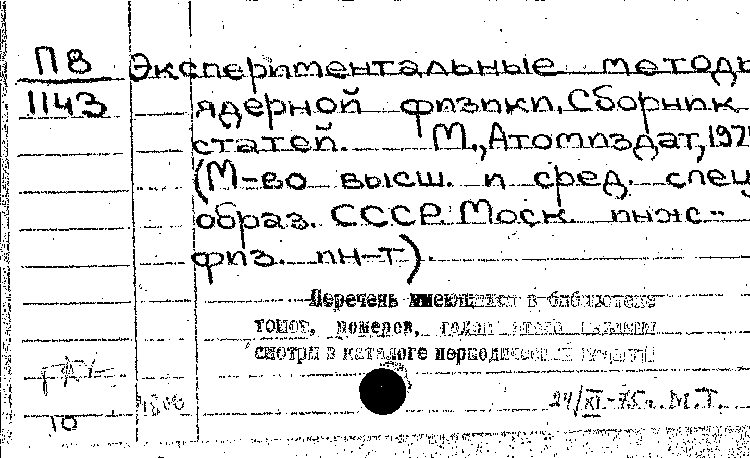 П8 Экспериментальные методы
1143 ядерной физики. Сборник
статей. М., Атомиздат, 197
(М-во высш. и сред. спец
образ. СССР. Моск. инж.-
физ. ин-т).
Перечень имеющихся в библиотеке
томов, номеров, годов этого издания
смотри в каталоге периодической
24/XI-75г. М.Т.
10